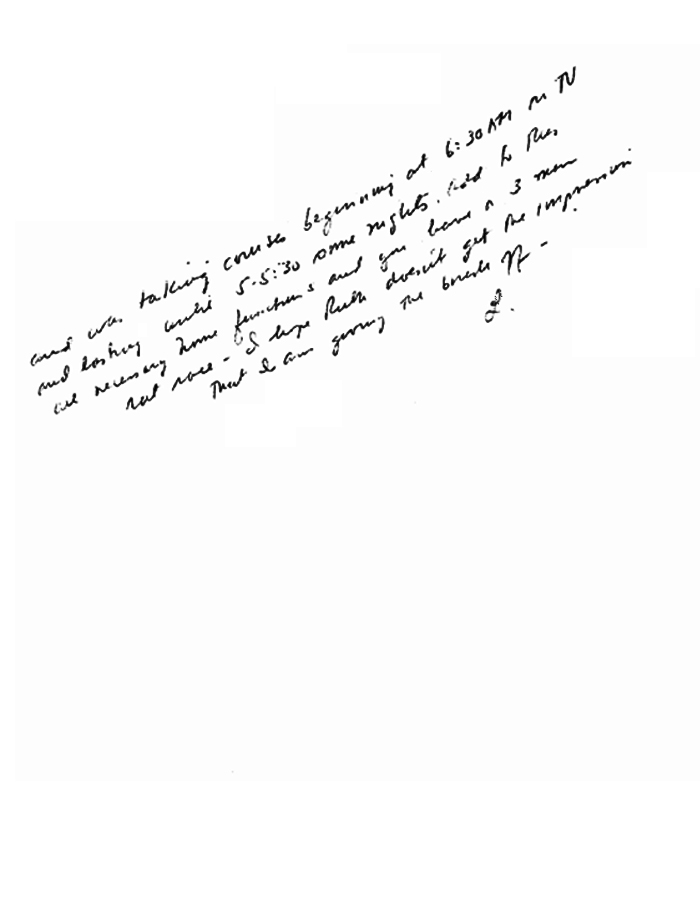 and was taking courses beginning at 6:30 AM on TV
and lasting until 5-5:30 some nights. Add to this
all necessary home functions and you have a 3 man
rat race - I hope Ruth doesn't get the impression
that I am giving the brush off -